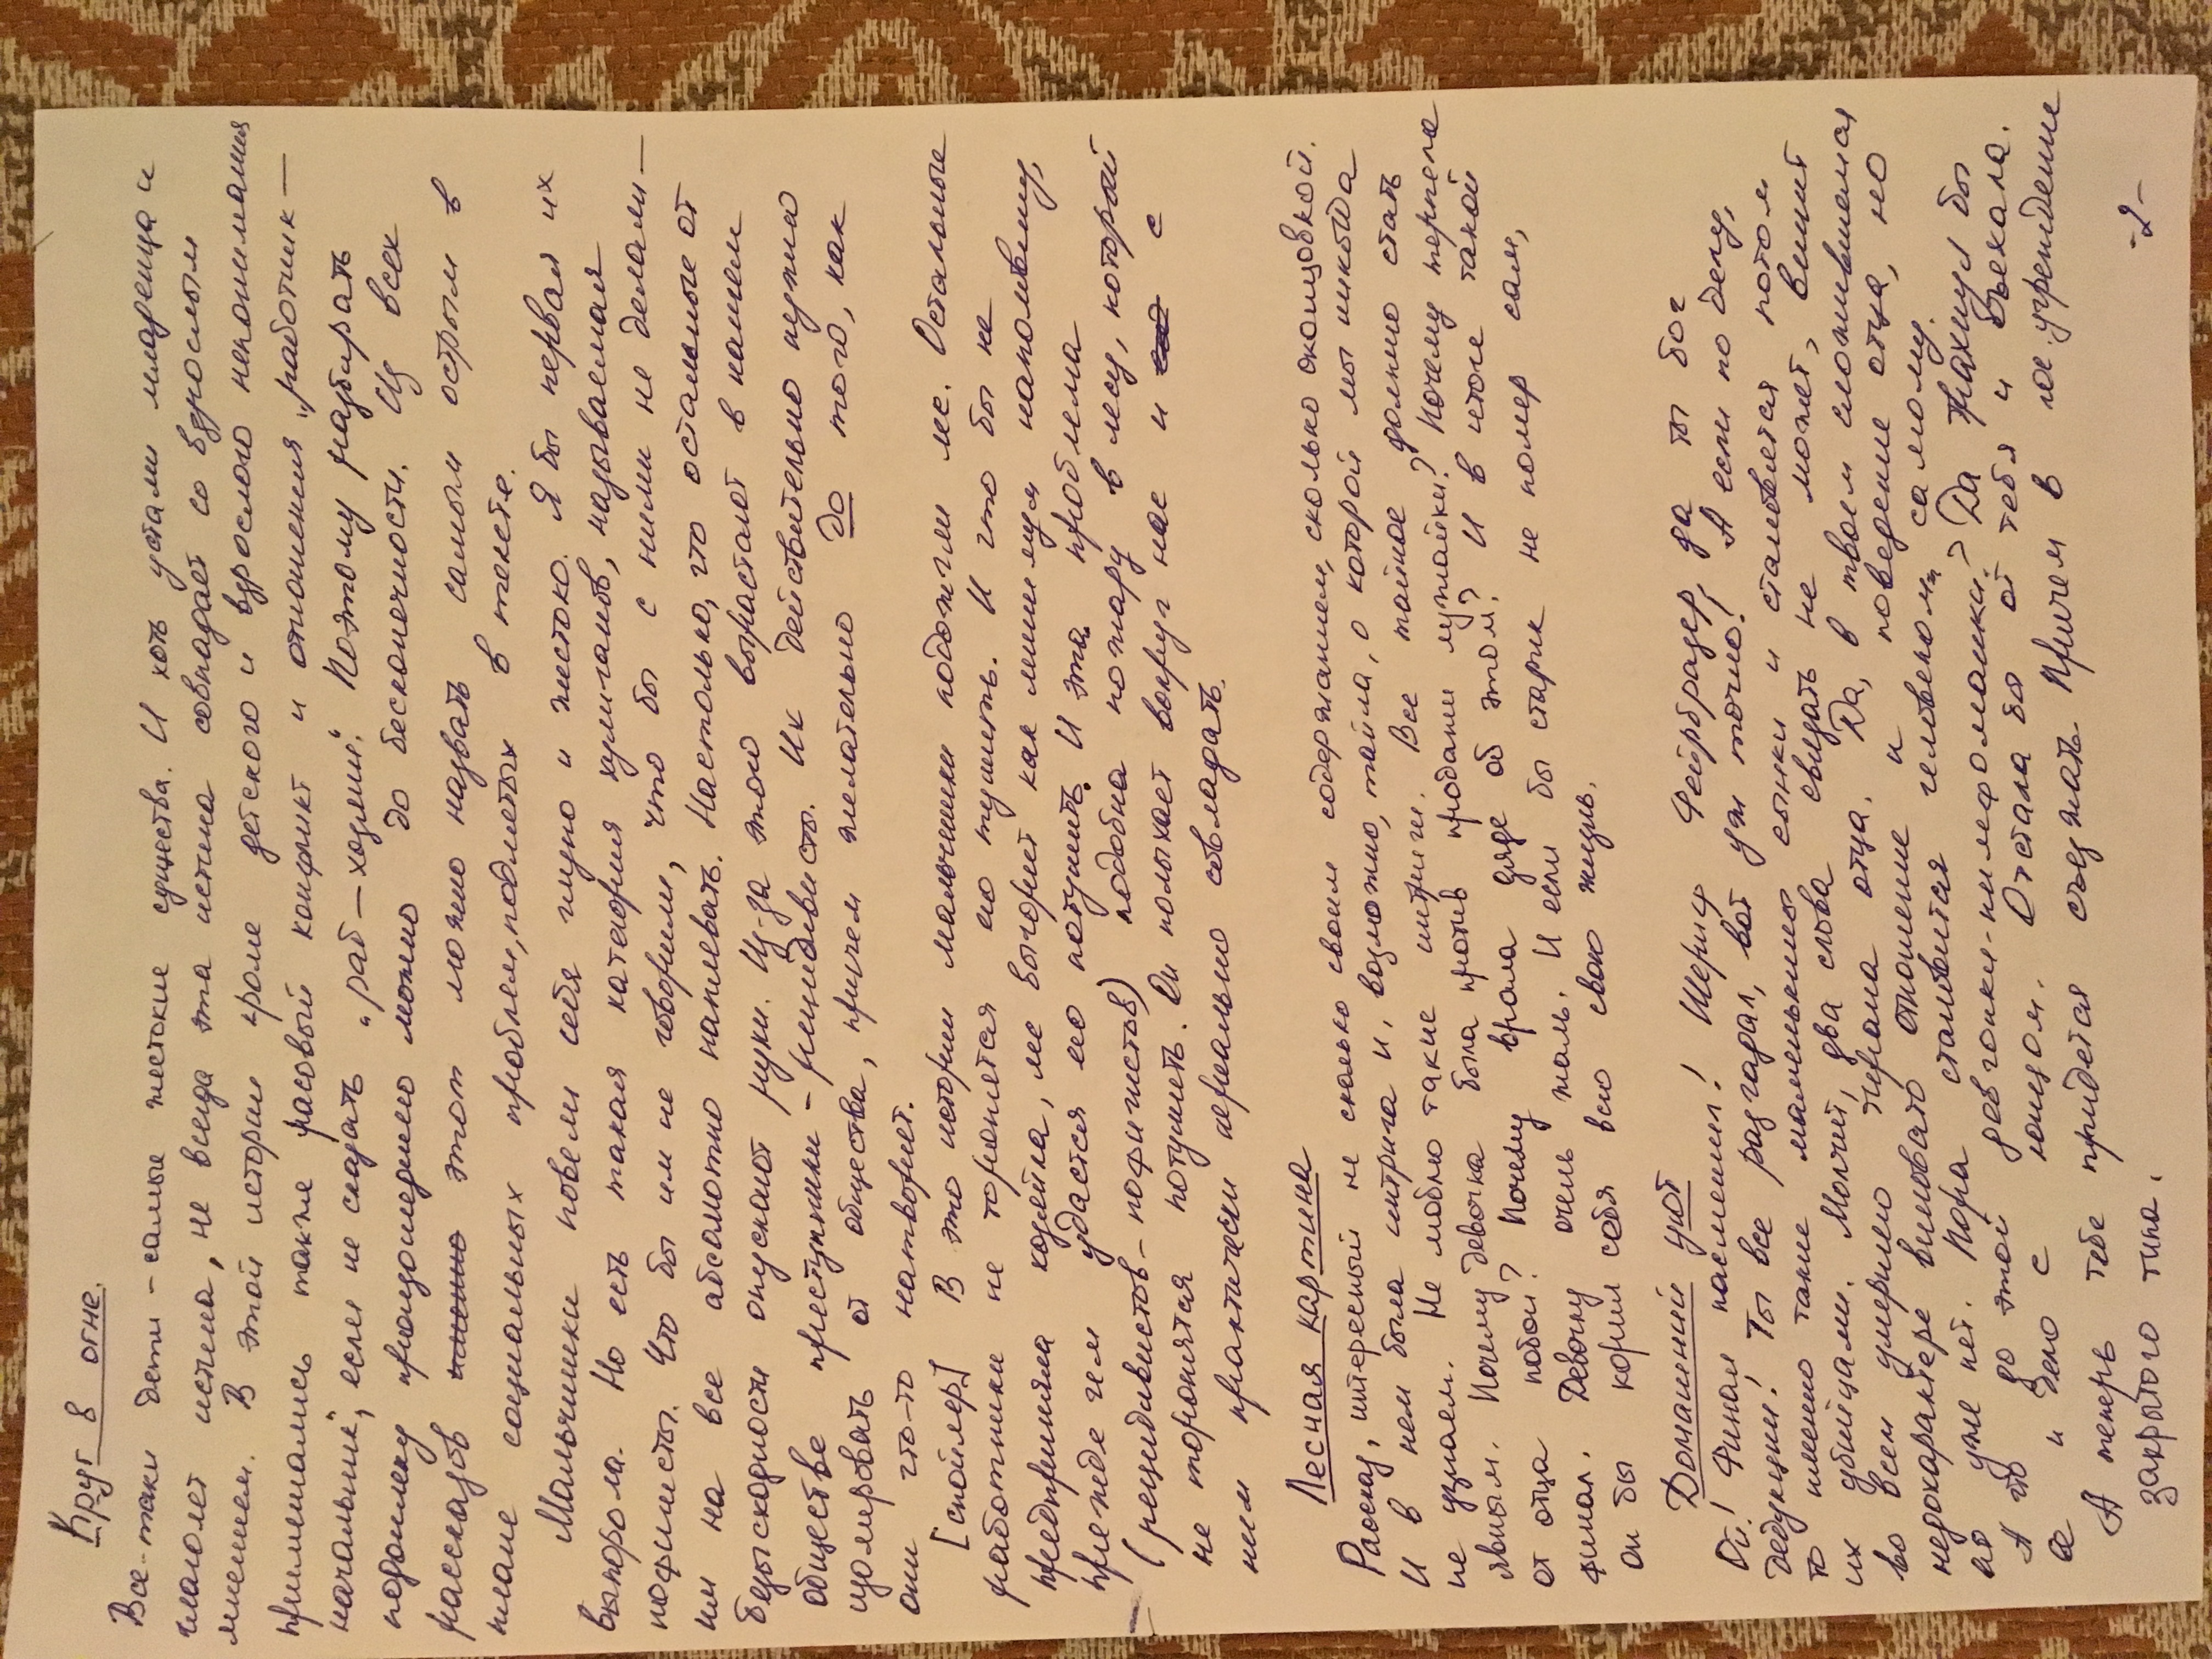 Круг в огне.
Все-таки дети - самые жестокие существа. И хоть устами младенца и
глаголет истина, не всегда эта истина совпадает со взрослым
мнением. В этой истории кроме детского и взрослого непонимания
примешались также расовый конфликт и отношения "работник —
начальник", если не сказать "раб — хозяин". Потому разбирать
подоплеку произошедшего можно до бесконечности. Из всех
рассказов этот можно назвать самым острым в
плане социальных проблем, поднятых в тексте.
Мальчишки повели себя глупо и жестоко. Я бы первая их
выпорола. Но есть такая категория хулиганов, называемая
пофигисты. Что бы им не говорили, что бы с ними не делали —
им на все абсолютно наплевать. Настолько, что остальные от
безысходности опускают руки. Из-за того возрастает в нашем
обществе преступники - рецидивисты. Их действительно нужно
изолировать от общества, причем желательно до того, как
они что-то натворят.
[спойлер] В это истории мальчишки подожгли лес. Остальные
работники не торопятся его тушить. И что бы не
предприняла хозяйка, лес выгорит как минимум наполовину,
прежде чем удастся его потушить. И эта проблема
(рецидивистов - пофигистов) подобна пожару в лесу, который
не торопятся потушить. Он полыхает вокруг нас и с
ним практически нереально совладать.
Лесная картина
Рассказ, интересный не сколько своим содержанием, сколько концовкой.
И в нем была интрига и, возможно, тайна, о которой мы никогда
не узнаем. Не люблю такие интриги. Все тайное должно стать
явным. Почему девочка была против продажи лужайки? Почему терпела
от отца побои? Почему врала дяде об этом? И в итоге такой
финал. Девочку очень жаль. И если бы старик не помер сам,
он бы корил себя всю свою жизнь.
Домашний уют
Ой! Финал насмешил! Шериф Фейрбразер, да ты бог
дедукции! Ты все разгадал, вот уж точно! А если по делу,
то именно такие маленькими сынки и становятся потом
их убийцами. Молчит, два слова связать не может, винит
во всем умершего тирана отца. Да, в твоем сложившемся
недохарактере виновато отношение и поведение отца, но
его уже нет. Пора становится "человеком" самому.
А то до этой девчонки-нимфоманки? Да трахнул бы
ее и дело с концом. Отстала бы от тебя и съехала.
А теперь тебе придется съезжать. Причем в гос. учреждение
закрытого типа.
-2-